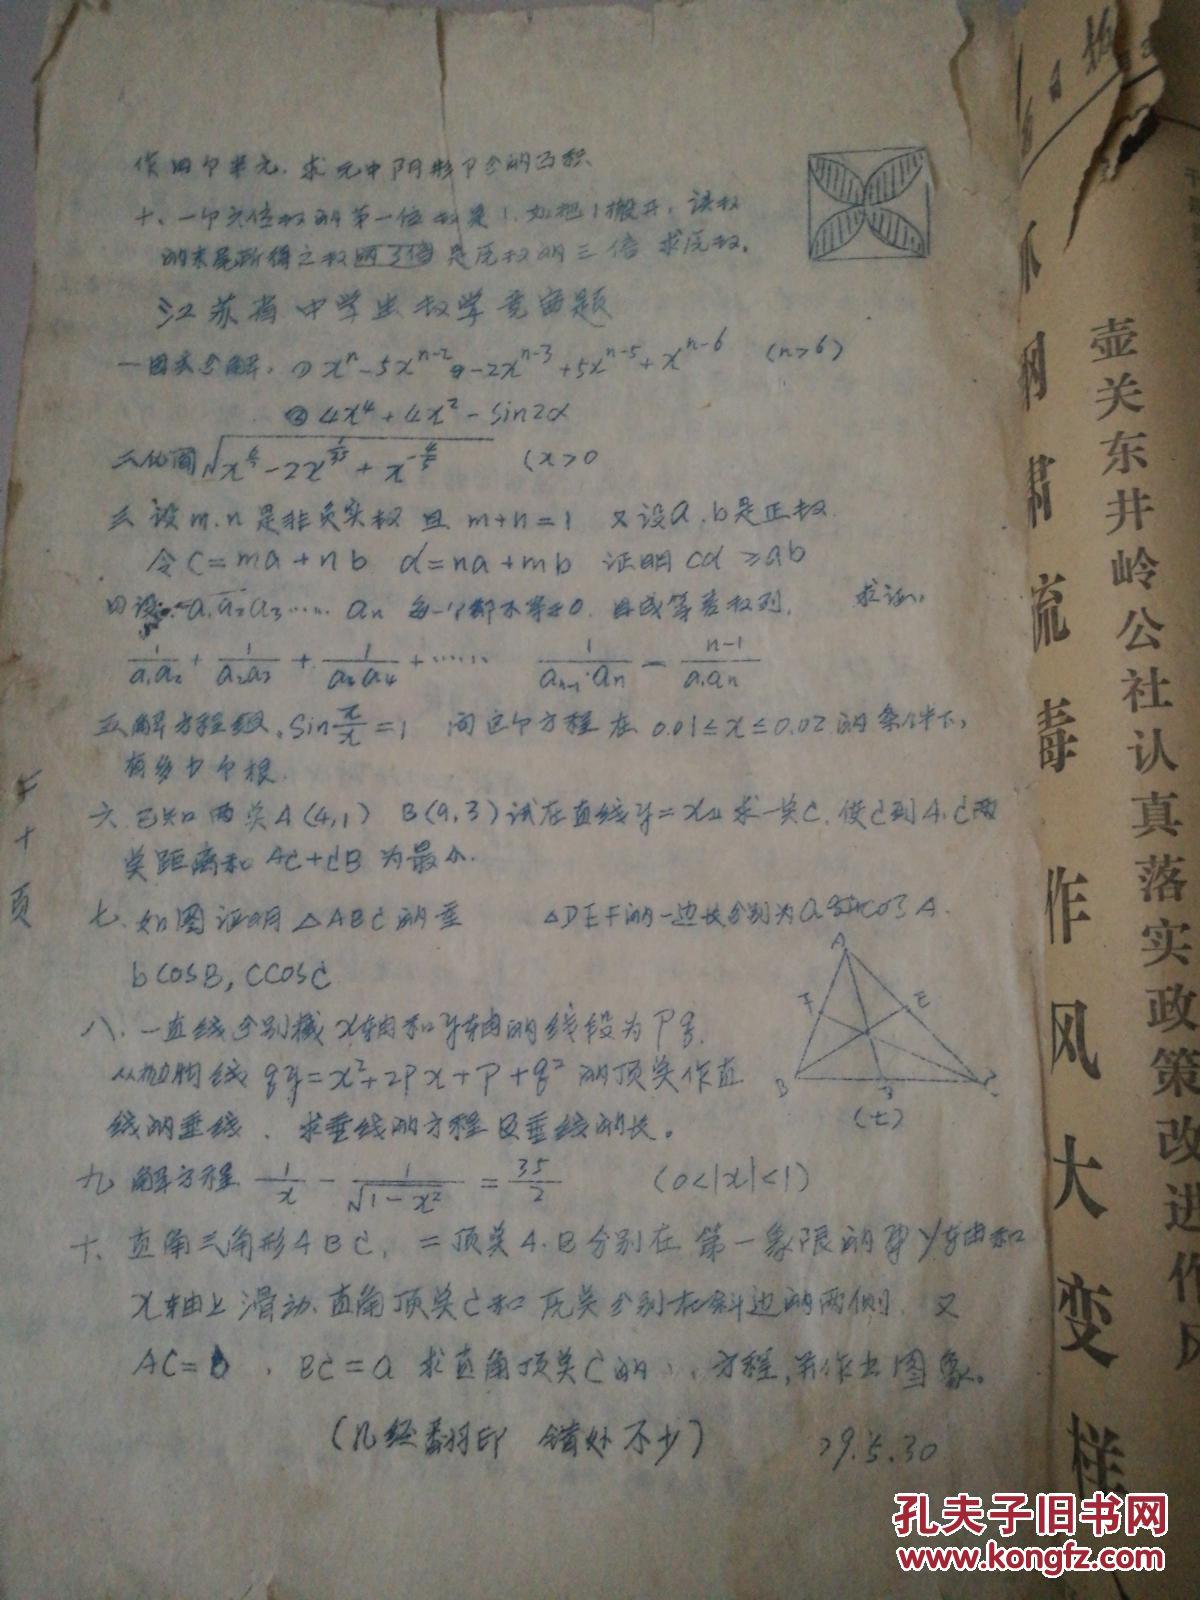 作四个半元,求元中阴形部分的面积
十、一个六位数的第一位数是1,如把1搬开,该数
的末尾所得之数的3倍是原数的三倍 求原数.
江苏省中学生数学竞赛题
一因式分解, (1) xⁿ-5xⁿ⁻²-2xⁿ⁻³+5xⁿ⁻⁵+xⁿ⁻⁶ (n>6)
② 4x⁴+4x²-sin2α
二化简
(x>0
三 设m.n是非负实数 且 m+n=1 又设a.b是正数.
令C=ma+nb d=na+mb 证明 cd≥ab
四设 a₁a₂a₃…… aₙ 每一个都不等于0.且成等差数列, 求证:
1/a₁a₂ + 1/a₂a₃ + 1/a₃a₄ +…… 1/aₙ₋₁·aₙ = n-1/a₁aₙ
五,解方程组, sin π/x =1 问这个方程在 0.01≤x≤0.02的条件下,
有多少个根.
六.已知两点A(4,1) B(9,3)试在直线y=x上求一点C,使C到A.C两
点距离和 AC+CB 为最小.
七.如图证明△ABC的垂 △DEF的一边长分别为a cosA.
bcosB, CCOSC
八.一直线分别截x轴和y轴的线段为P q.
从抛物线 qy=x²+2px+p+q² 的顶点作直
线的垂线、求垂线的方程及垂线的长。
九 解方程 1/x - 1/√1-x² = 35/2 (0<|x|<1)
十. 直角三角形ABC, 二顶点A.B分别在第一象限的 y轴和
x轴上滑动.直角顶点C和原点分别在斜边的两侧. 又
AC=b , BC=a 求直角顶点C的 方程,并作出图象。
(几经翻印 错处不少) 79.5.30
A
F
E
B
C
(七)
十
页
壶关东井岭公社认真落实政策改进作风
作风大变样
孔夫子旧书网
www.kongfz.com